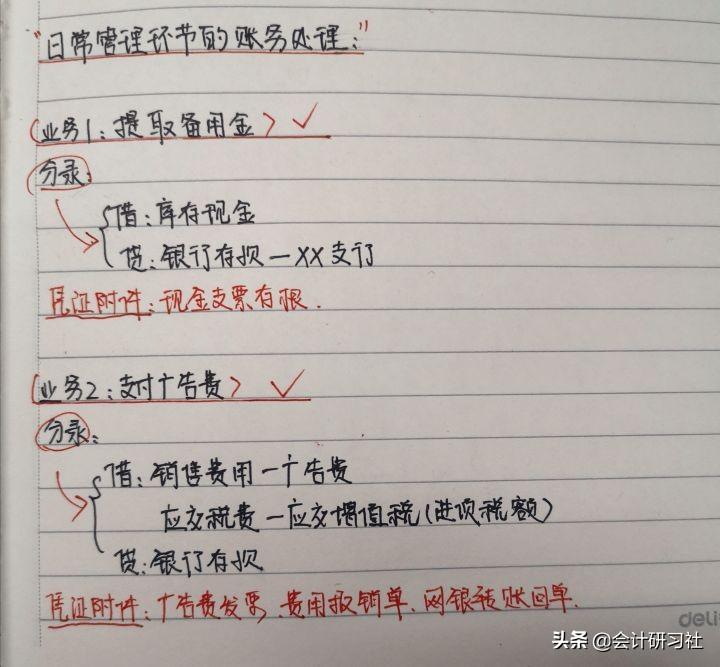 "日常管理环节的账务处理："
(业务1：提取备用金> ✓
分录：
借：库存现金
贷：银行存款—XX支行
凭证附件：现金支票存根.
(业务2：支付广告费> ✓
分录：
借：销售费用—广告费
应交税费—应交增值税(进项税额)
贷：银行存款
凭证附件：广告费发票、费用报销单、网银转账回单.
deli
头条 @会计研习社